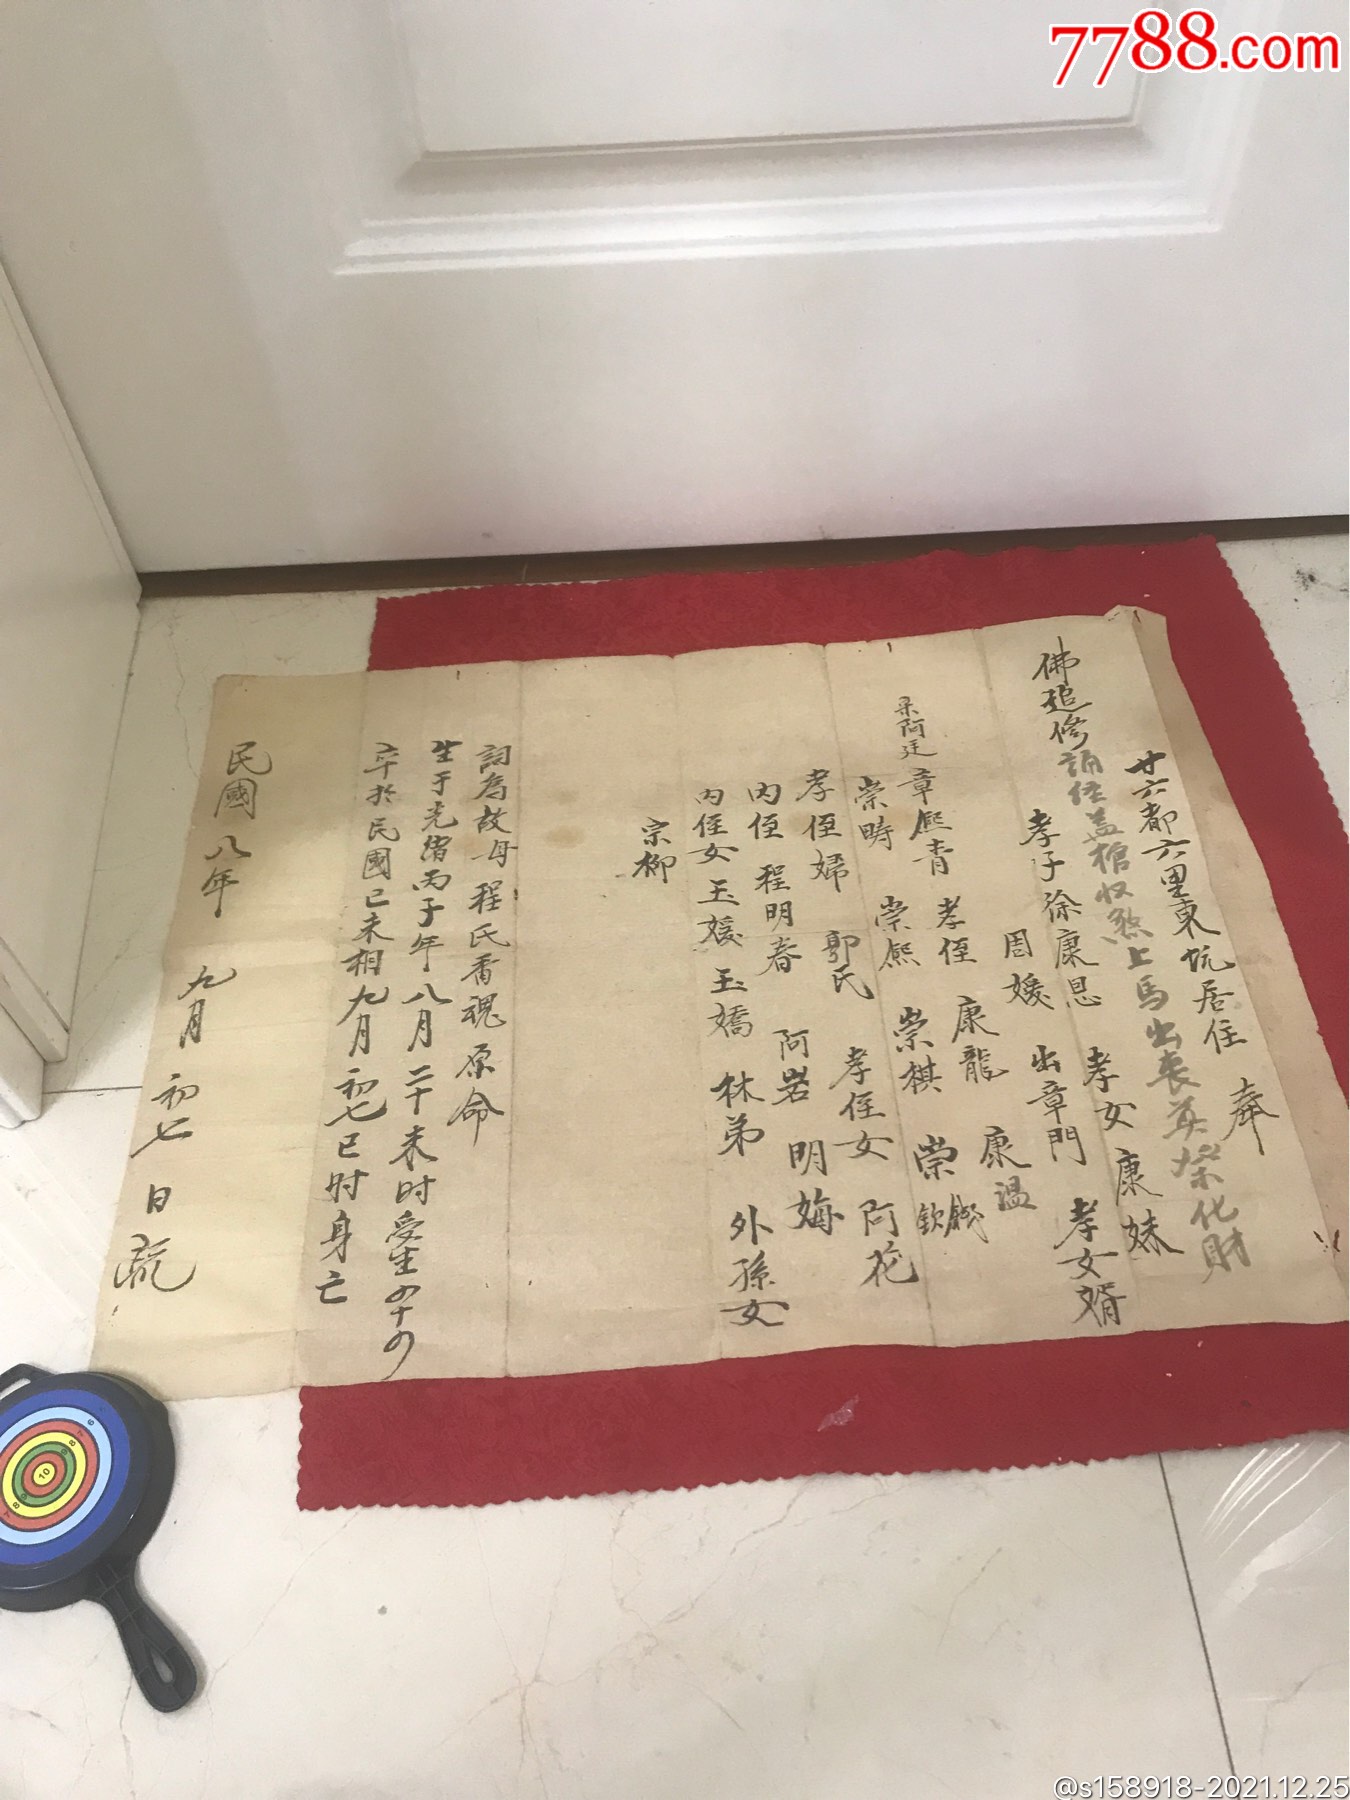 7788.com
廿六都六里東坑居住 奉
佛追修誦經蓋棺收煞上馬出喪英祭化財
孝子徐康恩 孝女康妹
周媛 出章門 孝女婿
章熙青 孝侄 康龍 康溫
崇時 崇熙 崇棋 崇欽
孝侄婦 郭氏 孝侄女 阿花
内侄 程明春 阿岩 明娒
内侄女 玉媛 玉嬌 林弟 外孫女
宗柳
詞為故母程氏香魂 原命
生于光緒丙子年八月二十未时受生四十四
卒於民國己未相九月初七巳时身亡
民國八年 九月 初七 日疏
@s158918-2021.12.25